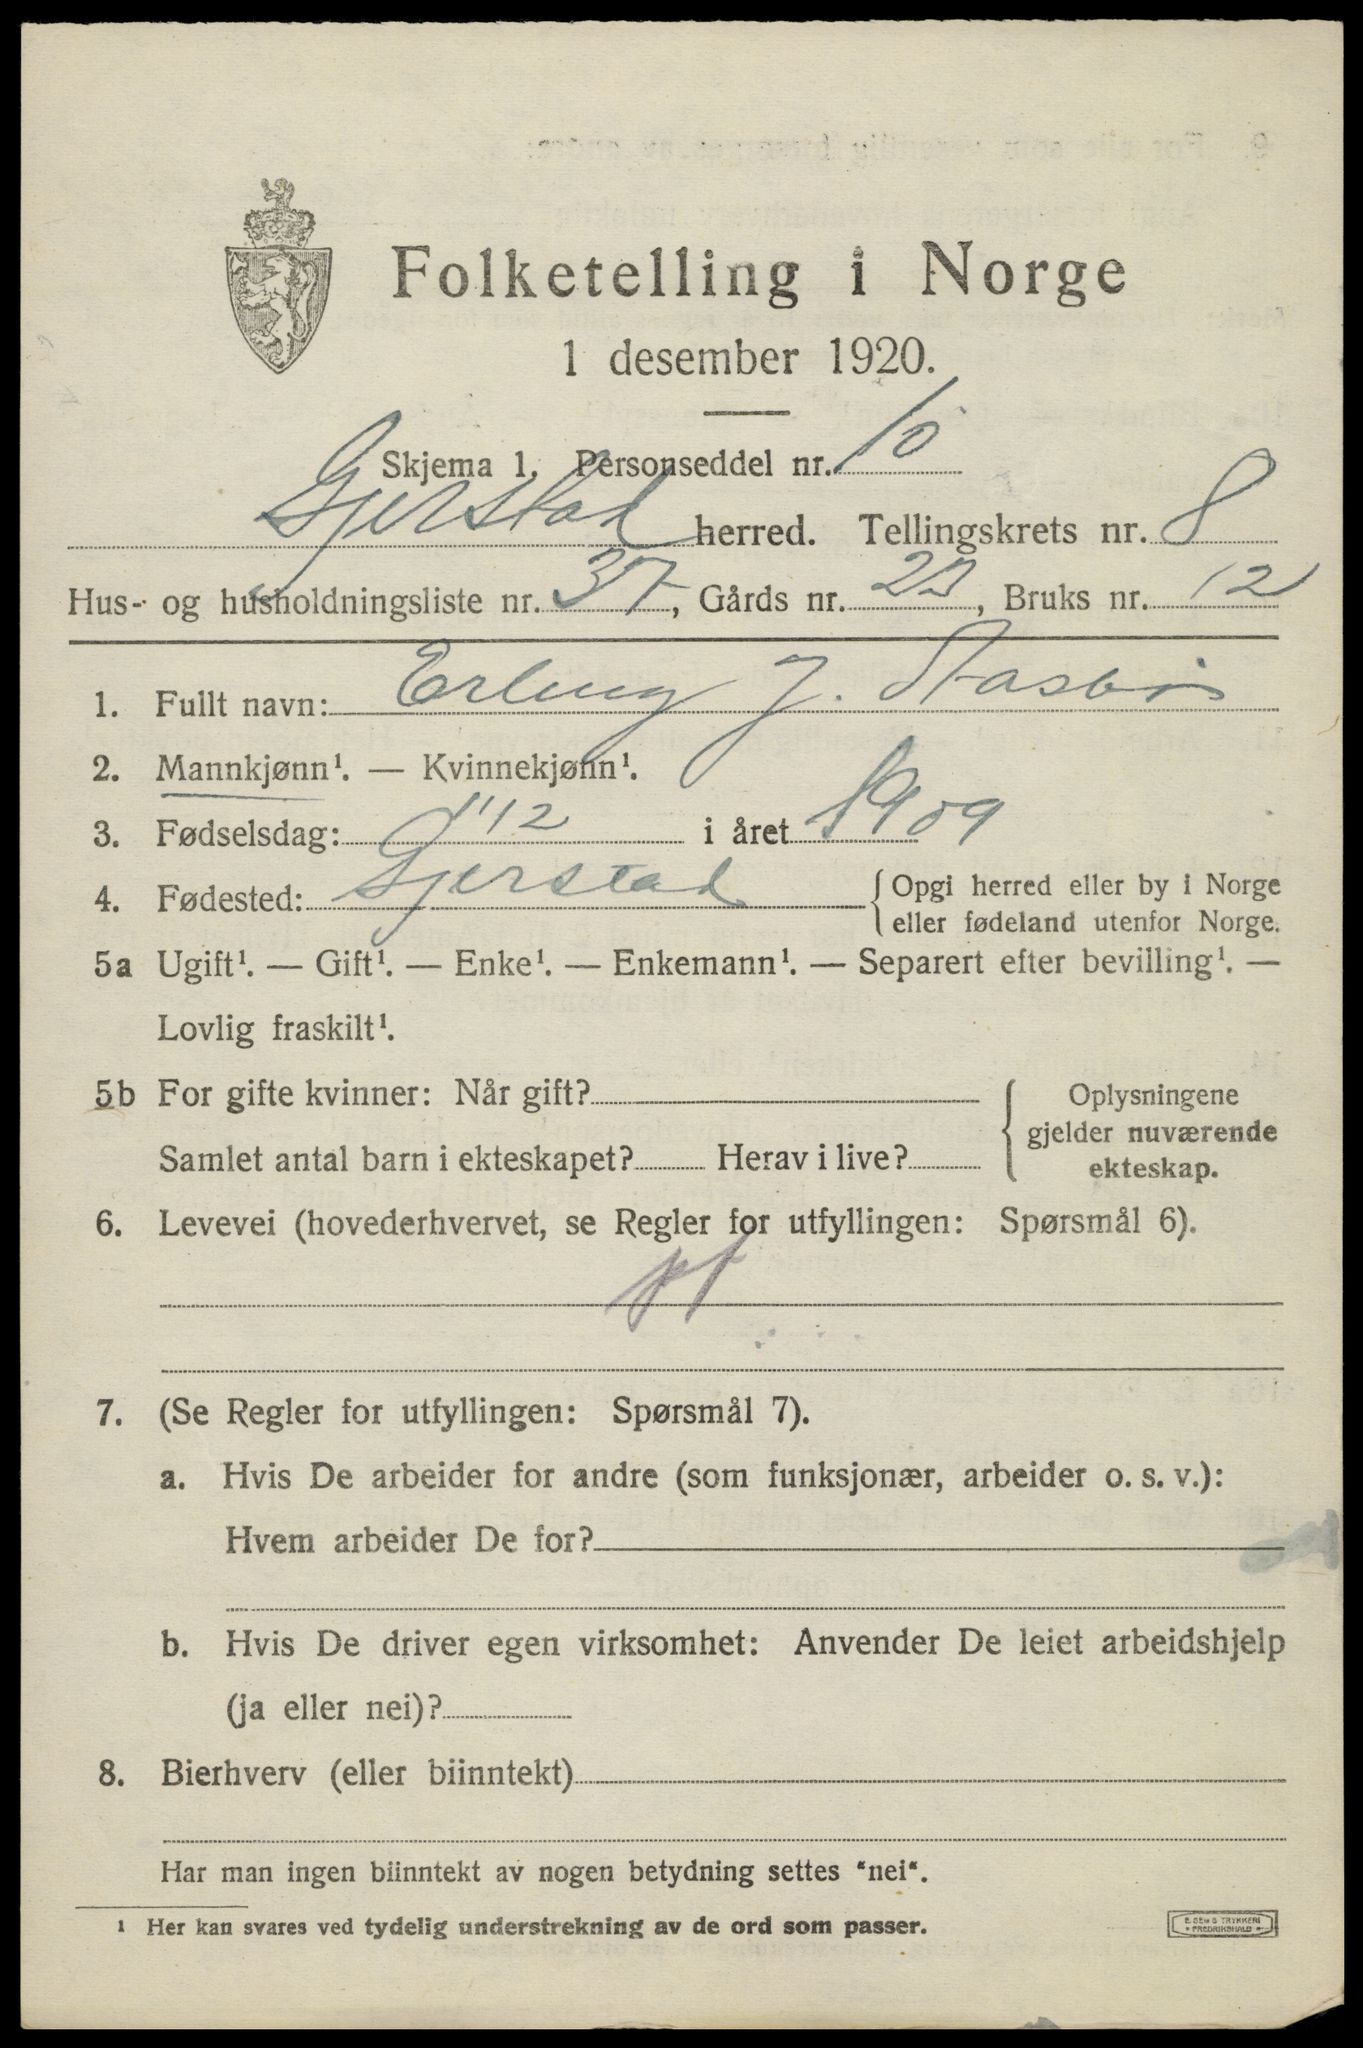 Folketelling i Norge
1 desember 1920.
Skjema 1. Personseddel nr. 10
Gjerstad herred. Tellingskrets nr. 8
Hus- og husholdningsliste nr. 37, Gårds nr. 22, Bruks nr. 12
1. Fullt navn: Erling J.
2. Mannkjønn¹. — Kvinnekjønn¹.
3. Fødselsdag: 1/12 i året 1909
4. Fødested: Gjerstad {Opgi herred eller by i Norge
eller fødeland utenfor Norge.
5a Ugift¹. — Gift¹. — Enke¹. — Enkemann¹. — Separert efter bevilling¹. —
Lovlig fraskilt¹.
5b For gifte kvinner: Når gift? { Oplysningene
gjelder nuværende
Samlet antal barn i ekteskapet? Herav i live? ekteskap.
6. Levevei (hovederhvervet, se Regler for utfyllingen: Spørsmål 6).
7. (Se Regler for utfyllingen: Spørsmål 7).
a. Hvis De arbeider for andre (som funksjonær, arbeider o. s. v.):
Hvem arbeider De for?
b. Hvis De driver egen virksomhet: Anvender De leiet arbeidshjelp
(ja eller nei)?
8. Bierhverv (eller biinntekt)
Har man ingen biinntekt av nogen betydning settes "nei".
¹ Her kan svares ved tydelig understrekning av de ord som passer.
TRYKKERI
FREDRIKSHALD